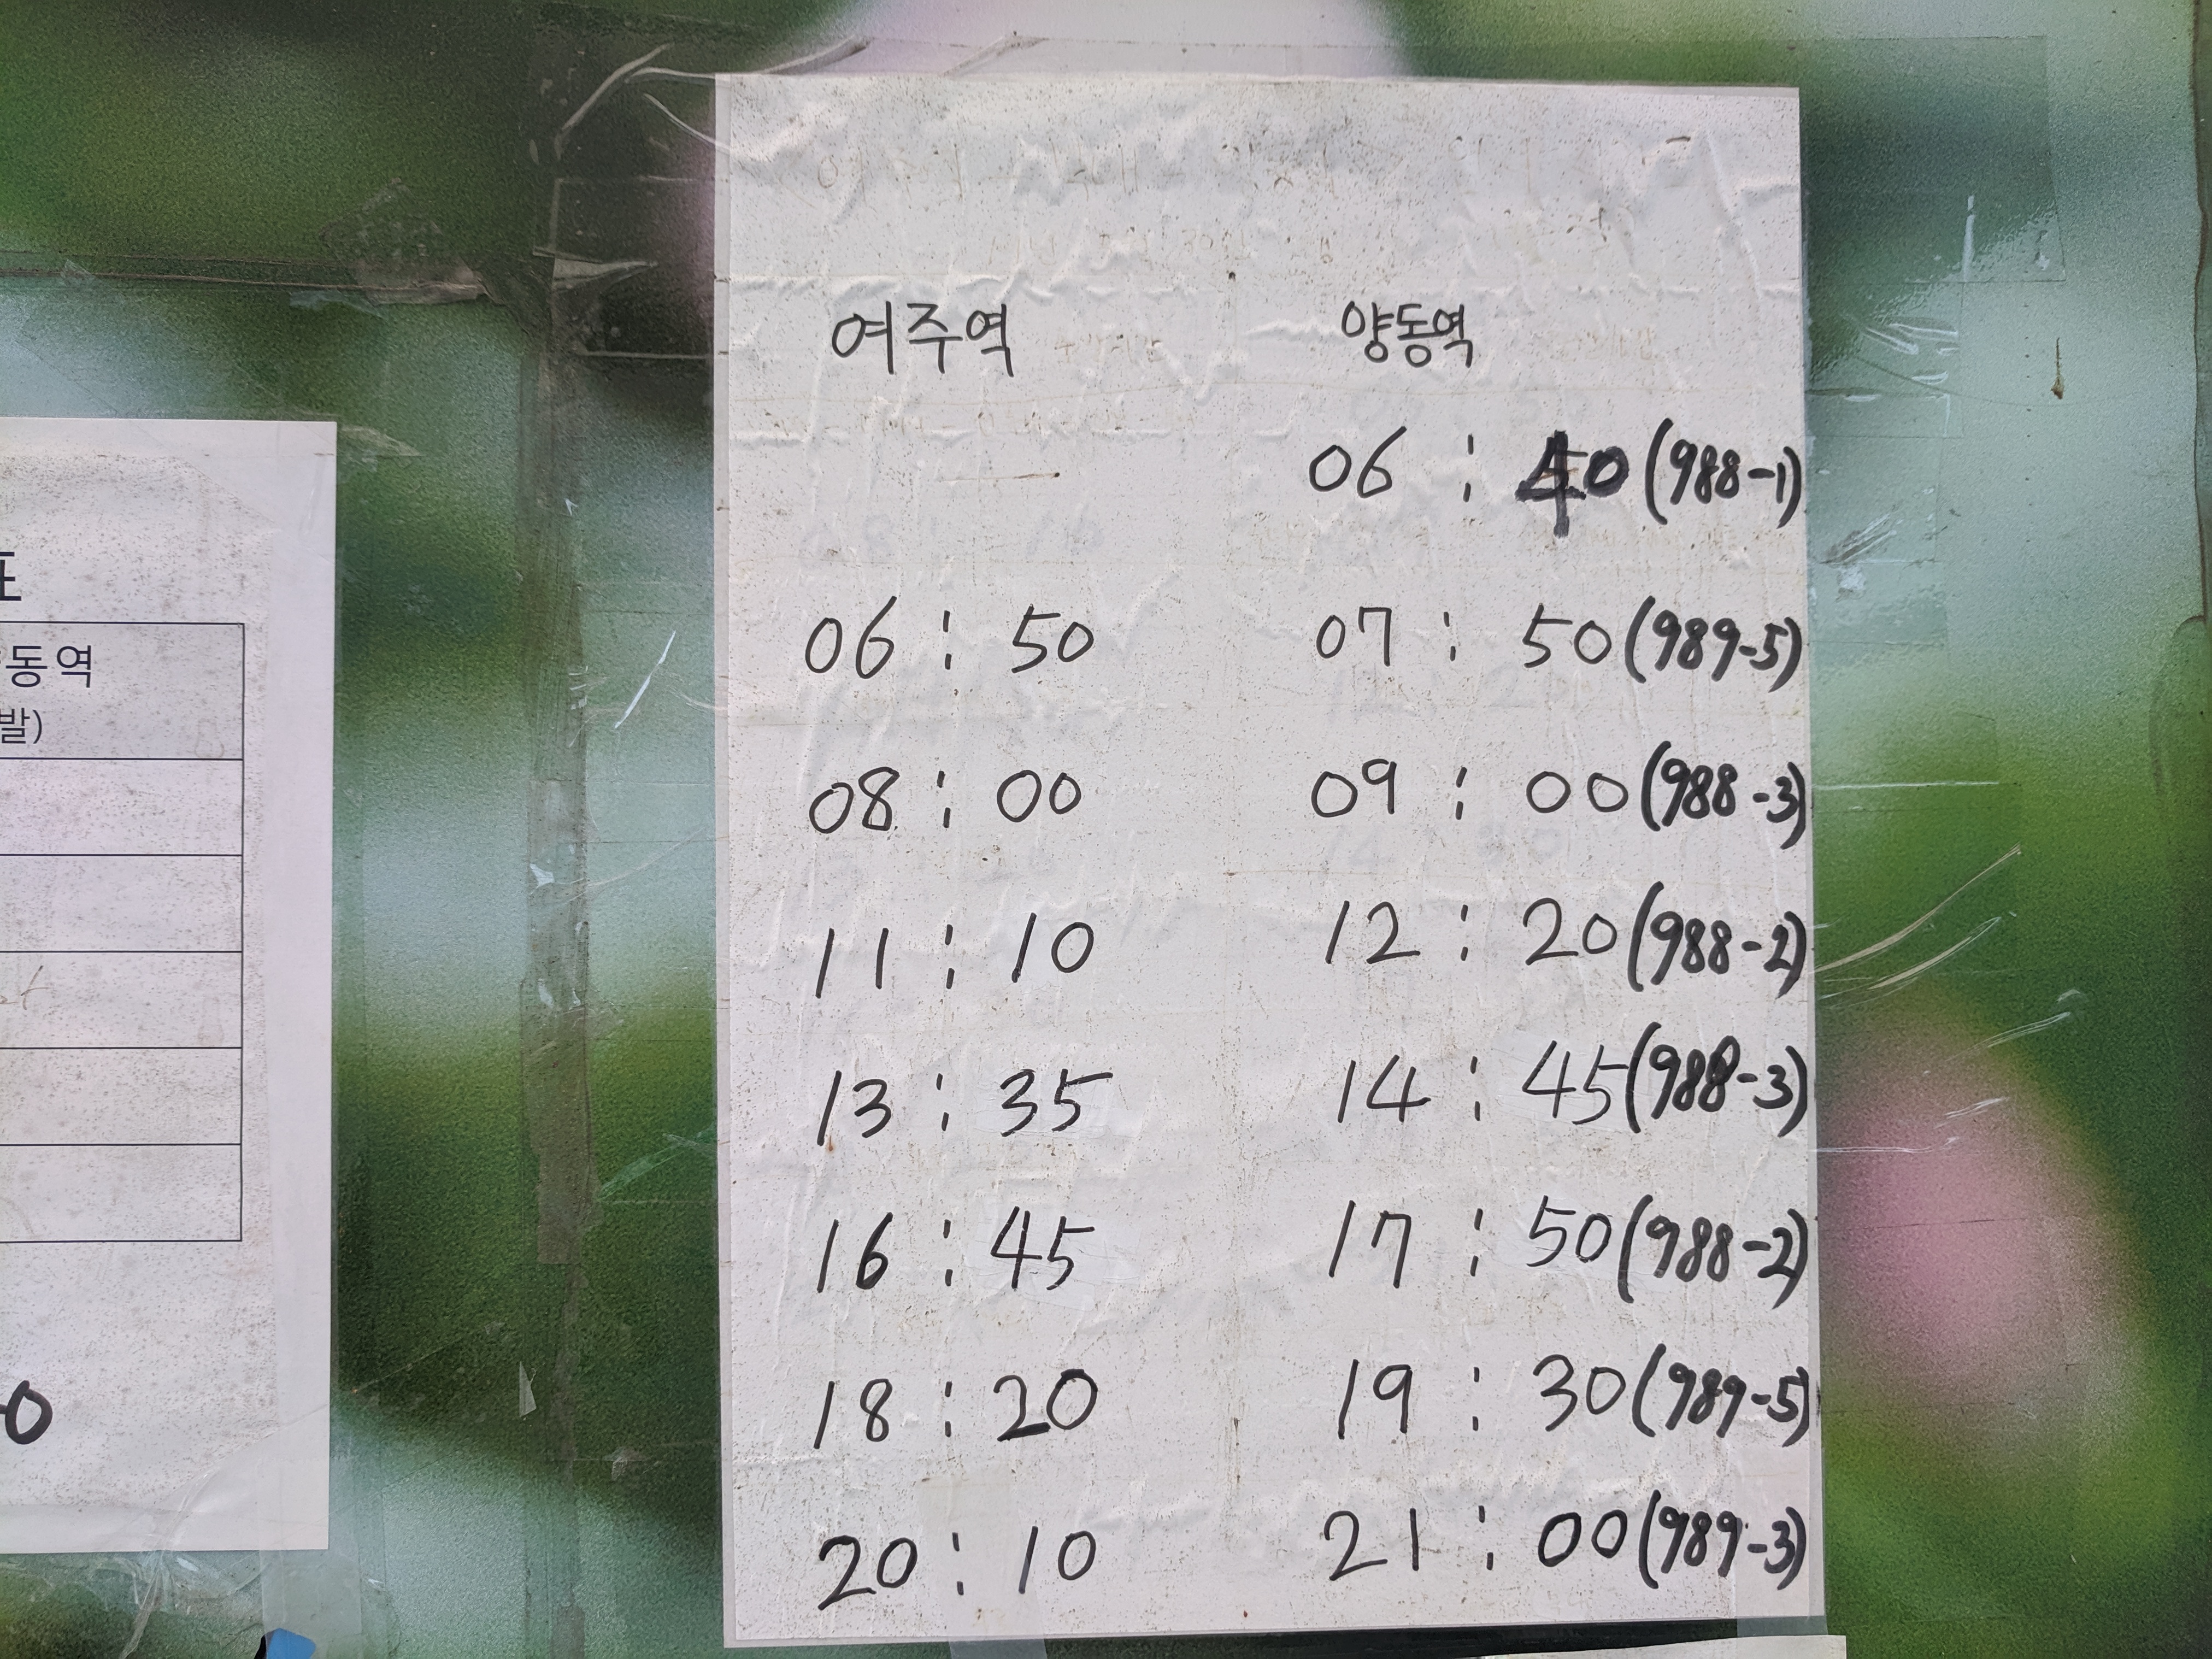 동역
발)
여주역 양동역
06 : 40 (988-1)
06 : 50 07 : 50 (989-5)
08 : 00 09 : 00 (988-3)
11 : 10 12 : 20 (988-2)
13 : 35 14 : 45 (988-3)
16 : 45 17 : 50 (988-2)
18 : 20 19 : 30 (989-5)
20 : 10 21 : 00 (989-3)